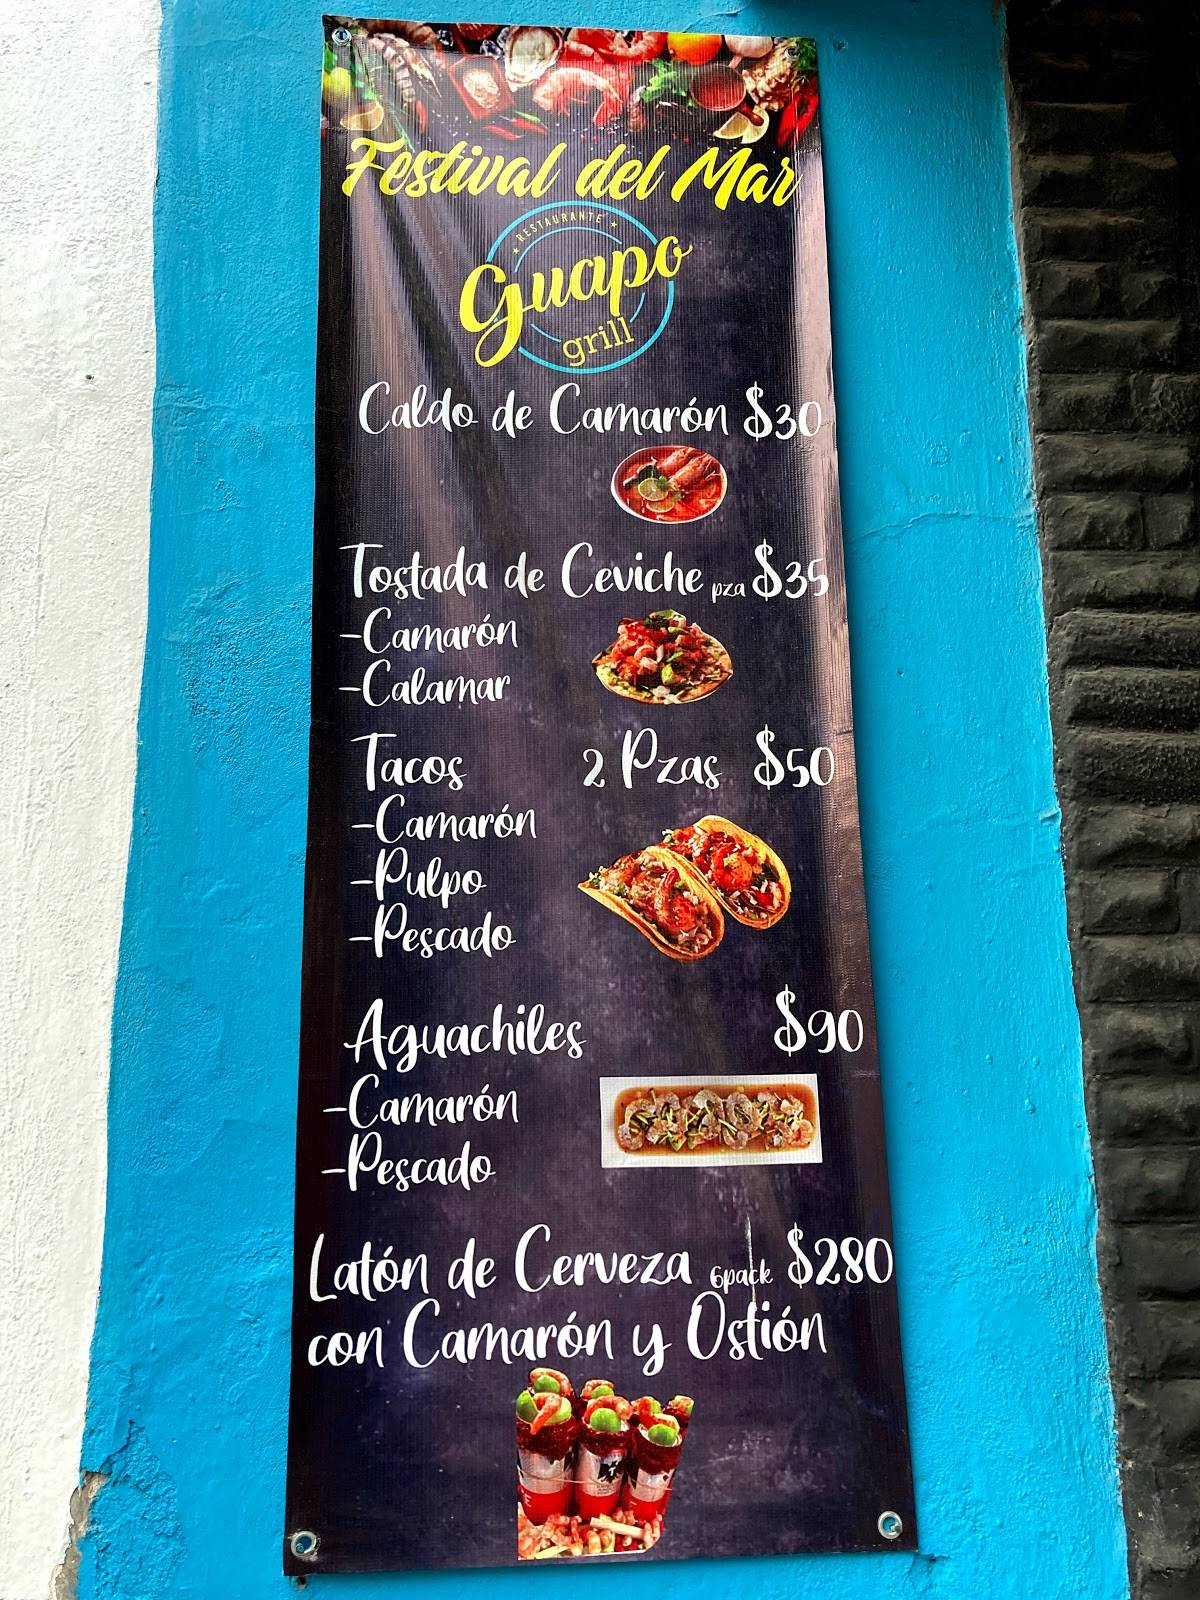 Festival del Mar
RESTAURANTE
Guapo
grill
Caldo de Camarón $30
Tostada de Ceviche pza $35
-Camarón
-Calamar
Tacos 2 Pzas $50
-Camarón
-Pulpo
-Pescado
Aguachiles $90
-Camarón
-Pescado
Latón de Cerveza 6pack $280
con Camarón y Ostión